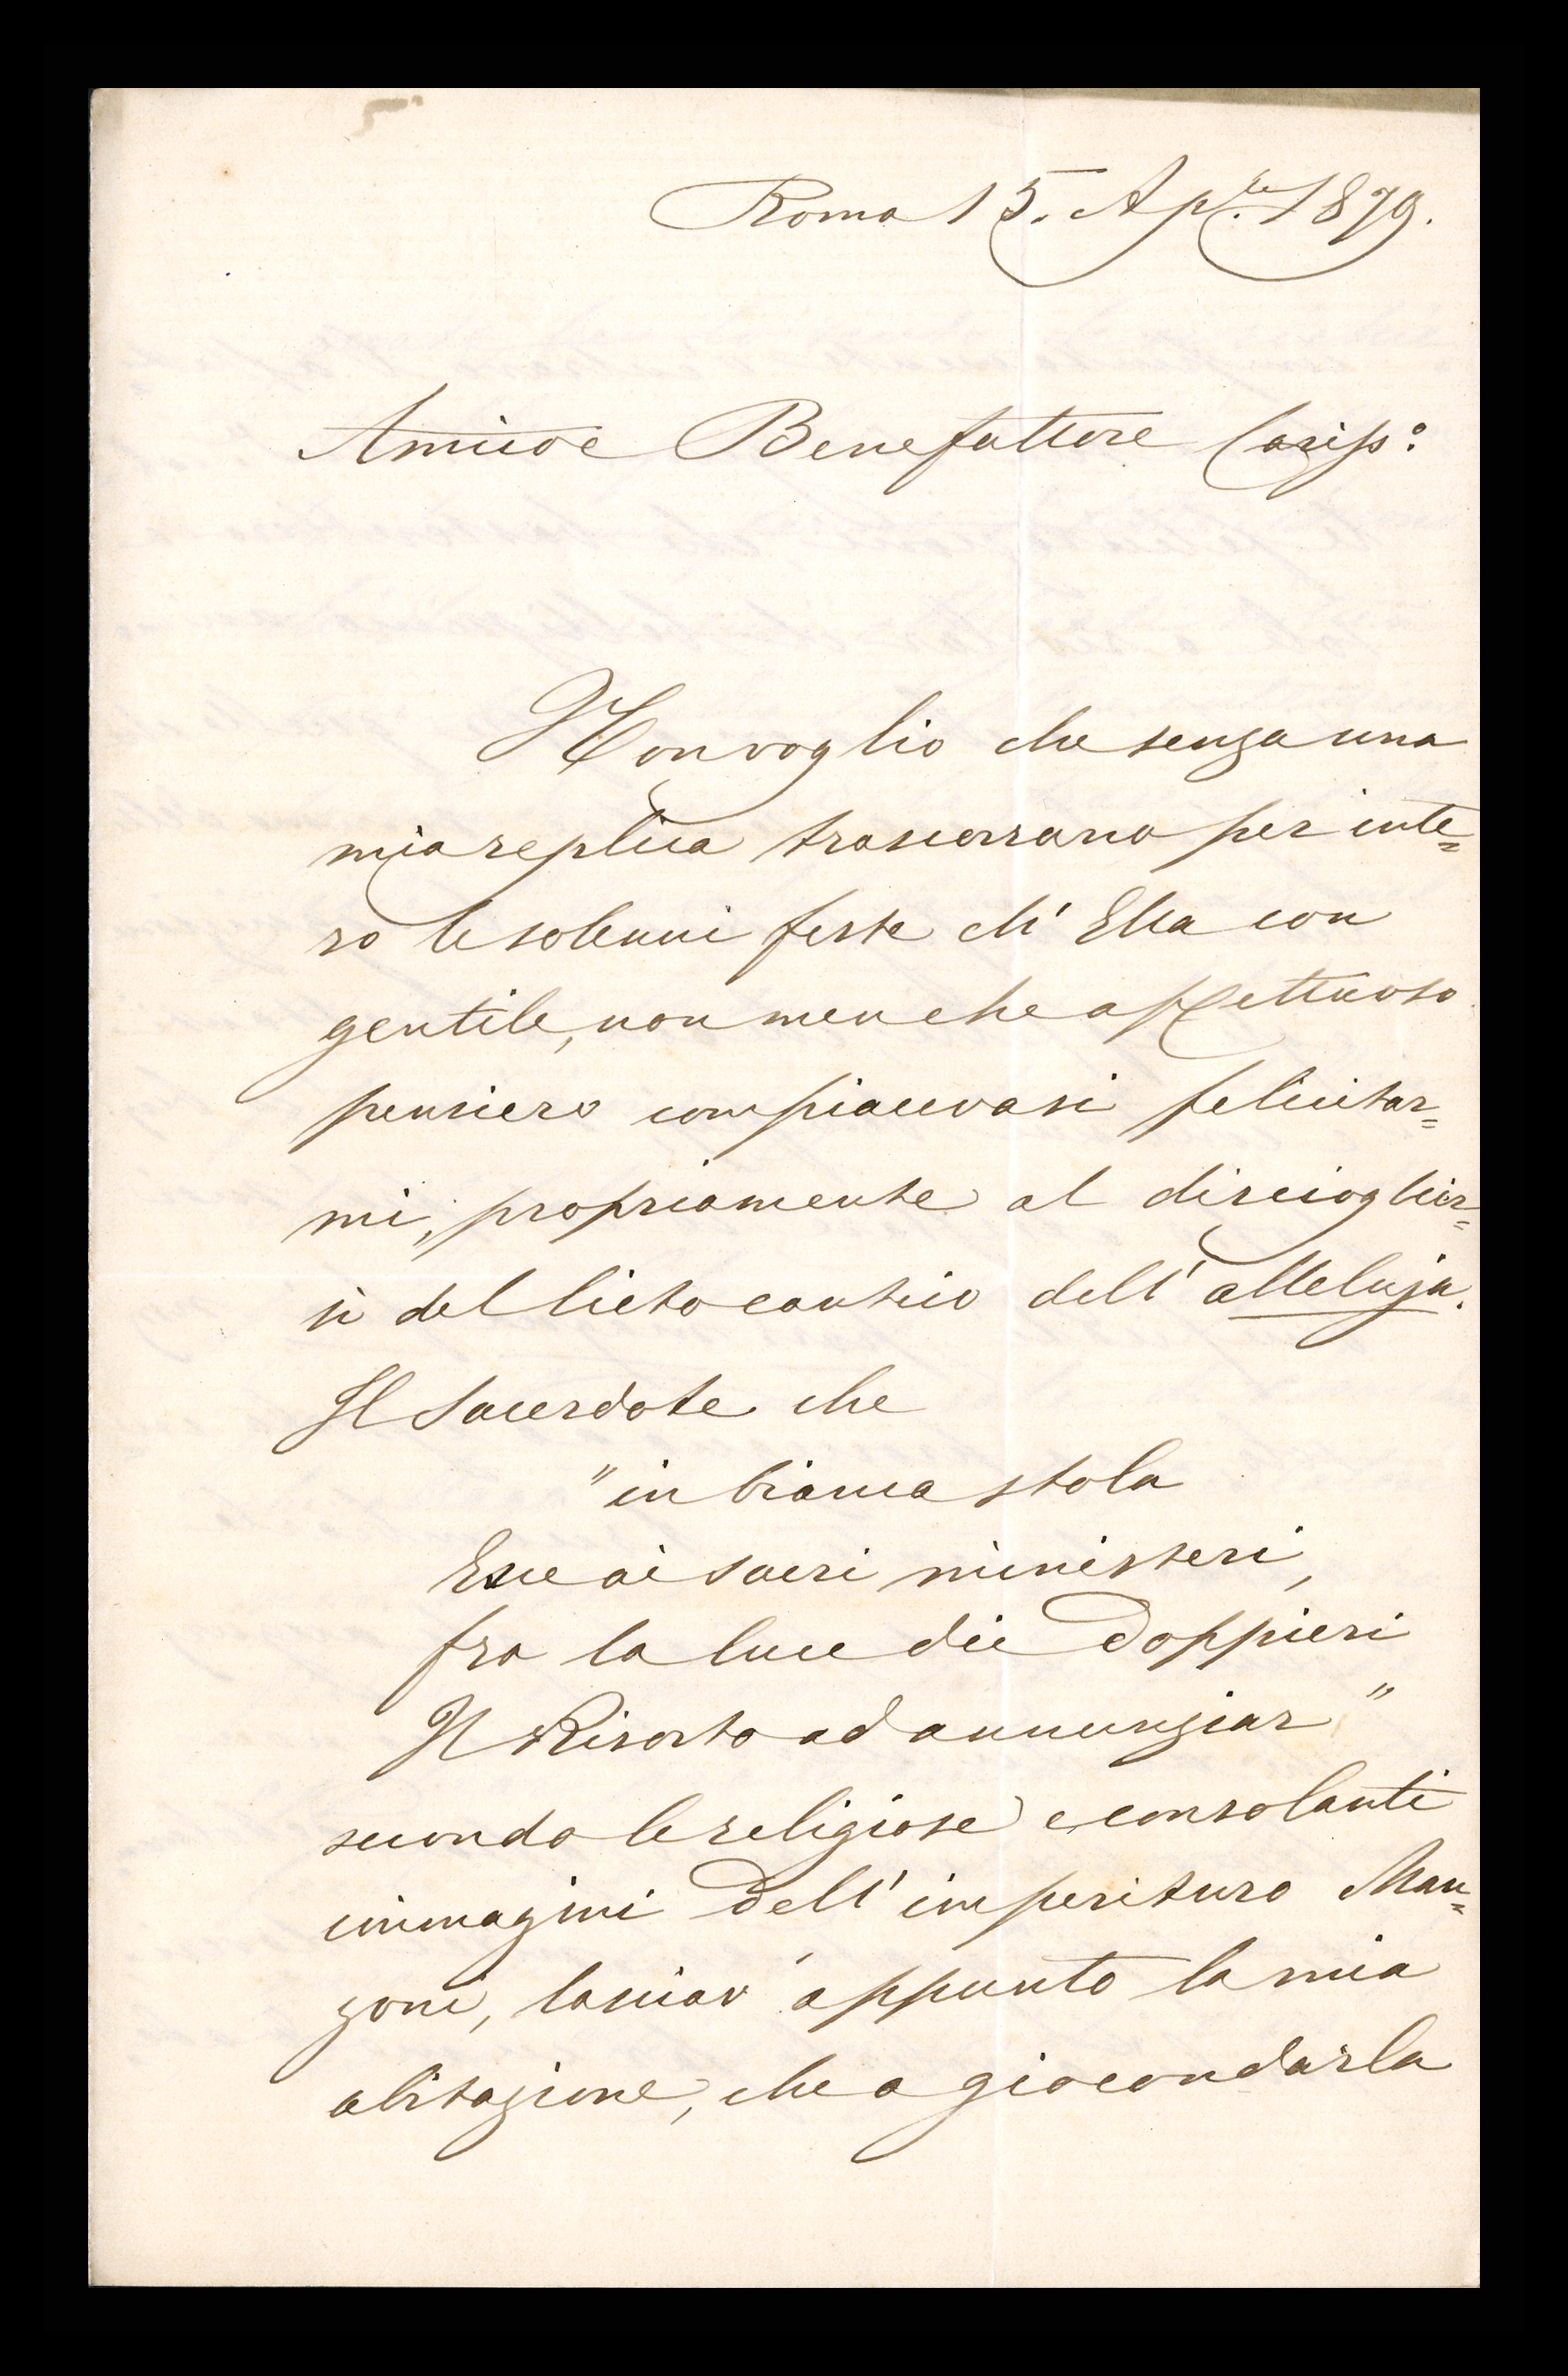 Roma 15. Ap.le 1879.
Amico e Benefattore Cariss:o
Non voglio che senza una
mia replica trascorrano per inte=
ro le solenni feste ch' Ella con
gentile, non men che affettuoso
pensiero compiacevasi felicitar=
mi, propriamente al discioglier=
si del lieto cantico dell' alleluja.
Il Sacerdote che
"in bianca stola
Esce ai sacri ministeri,
fra la luce dei doppieri
Il Risorto ad annunziar"
secondo le religiose e consolanti
immagini dell' imperituro Man=
zoni, lasciav' appunto la mia
abitazione, che a giocondarla